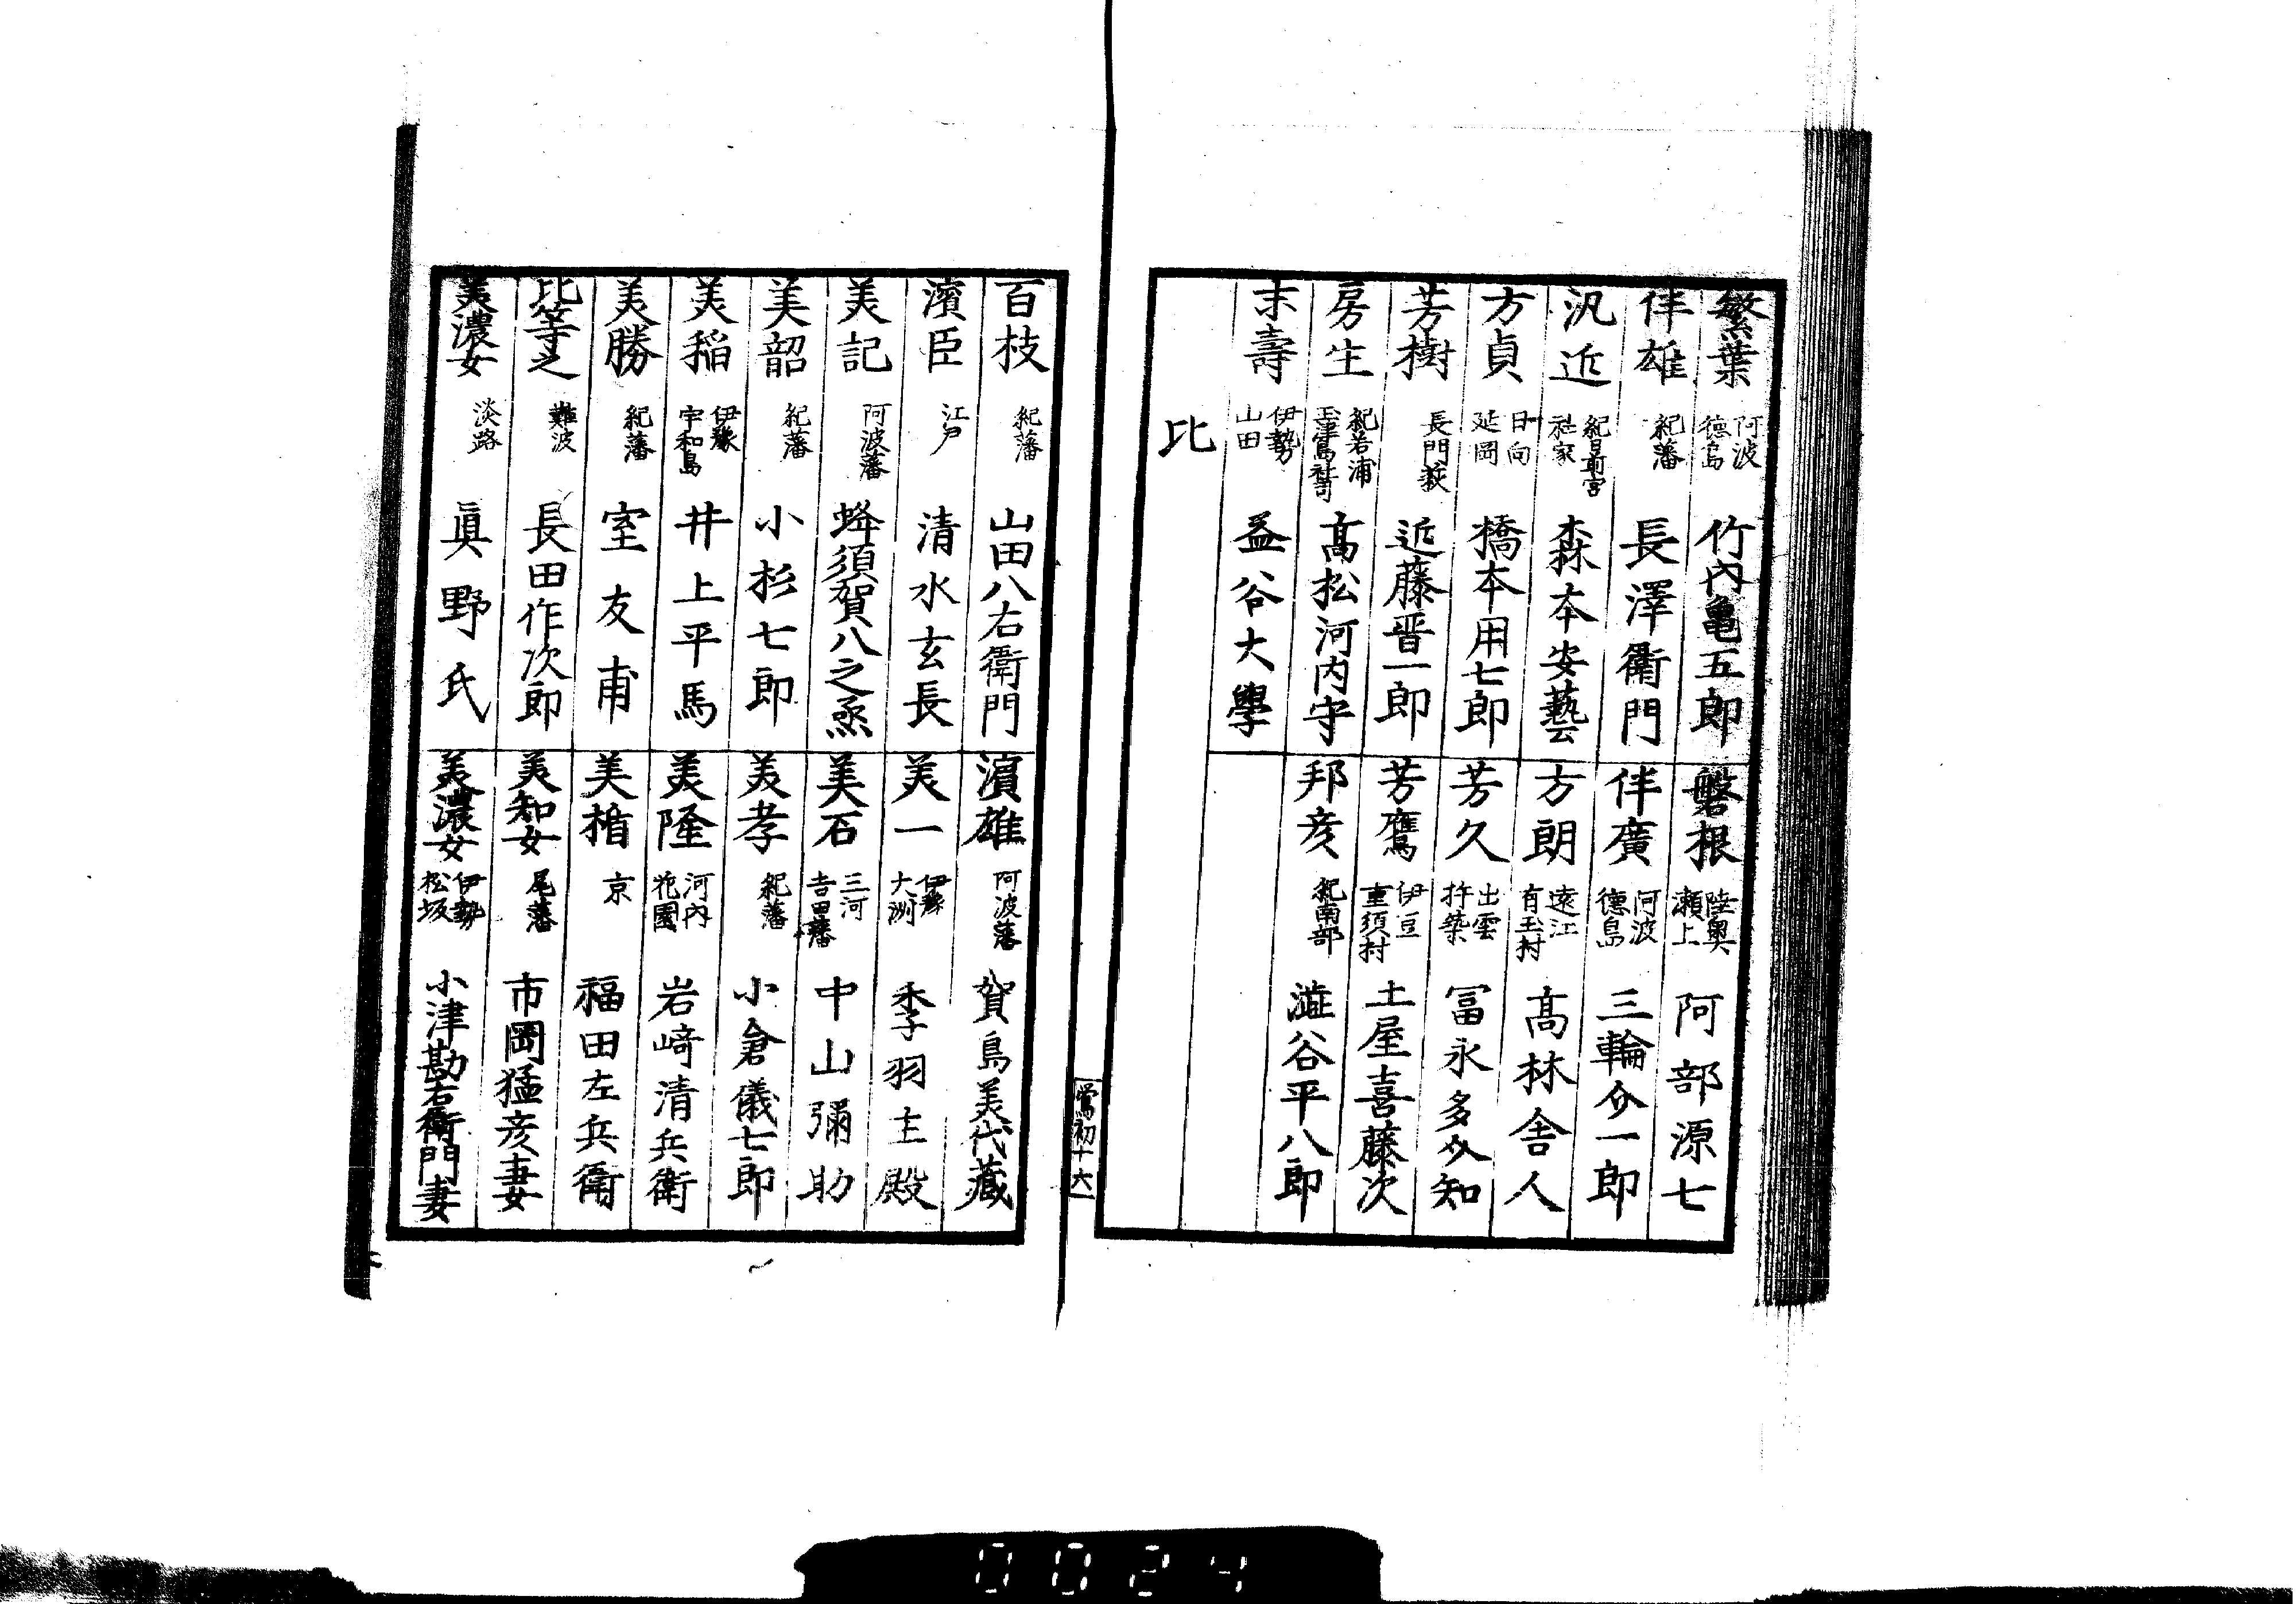 繁葉 阿波德島 竹內亀五郎
磐根 陸奥瀬上 阿部源七
伴雄 紀藩 長澤衛門
伴廣 阿波德島 三輪介一郎
汎近 紀日前宮社家 森本安藝
方朗 遠江有玉村 髙林舎人
方貞 日向延岡 橋本用七郎
芳久 出雲杵築 冨永多介知
芳樹 長門萩 近藤晋一郎
芳鷹 伊豆重須村 土屋喜藤次
房生 紀若浦玉津島社司 髙松河内守
邦彦 紀南部 澁谷平八郎
末壽 伊勢山田 益谷大學
比
鴬初十六
百枝 紀藩 山田八右衛門
濱雄 阿波藩 賀島美代藏
濱臣 江戸 清水玄長
美一 伊豫大洲 李羽主殿
美記 阿波藩 蜂須賀八之烝
美石 三河吉田藩 中山彌助
美韶 紀藩 小杉七郎
美孝 紀藩 小倉儀七郎
美稲 伊豫宇和島 井上平馬
美隆 河内花園 岩﨑清兵衛
美勝 紀藩 室友甫
美楯 京 福田左兵衛
比等之 難波 長田作次郎
美知女 尾藩 市岡猛彦妻
美濃女 淡路 眞野氏
美濃女 伊勢松坂 小津勘右衛門妻
0024